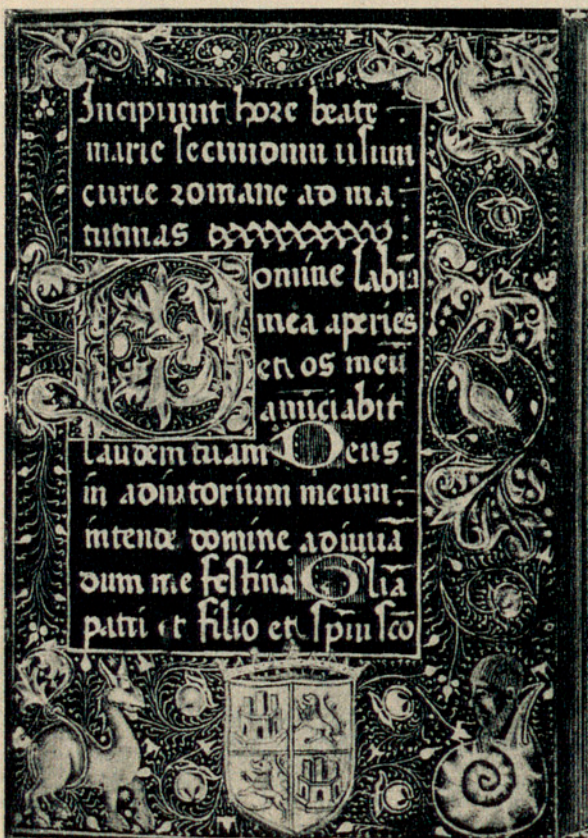 Incipiunt hore beate
marie secundum usum
curie romane ad ma
tutinas
Domine labia
mea aperies
et os meū
anunciabit
laudem tuam Deus
in adiutorium meum
intende domine adiuuā
dum me festina Gliā
patri et filio et spiu scō